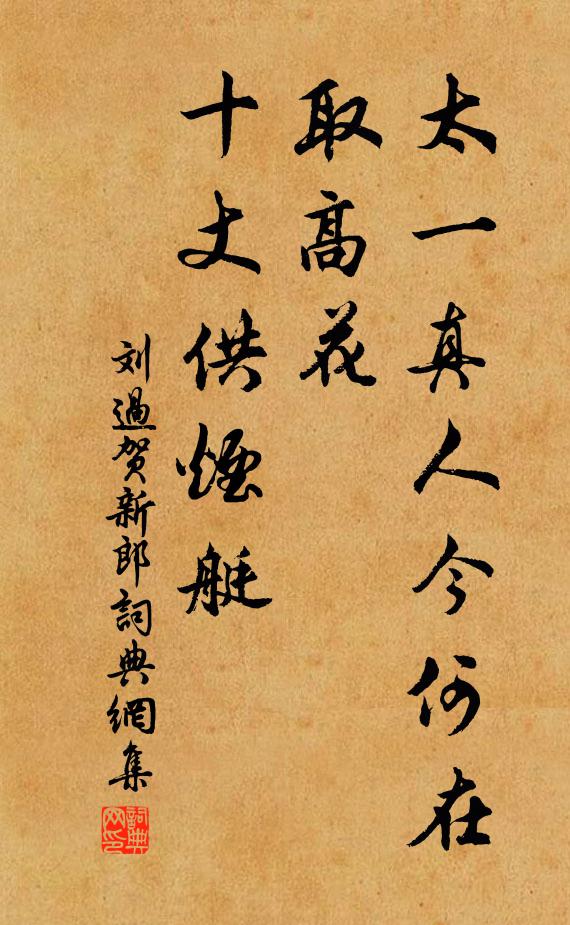 太一真人今何在
取高花
十丈供煙艇
刘過贺新郎詞典網集
詞典网印